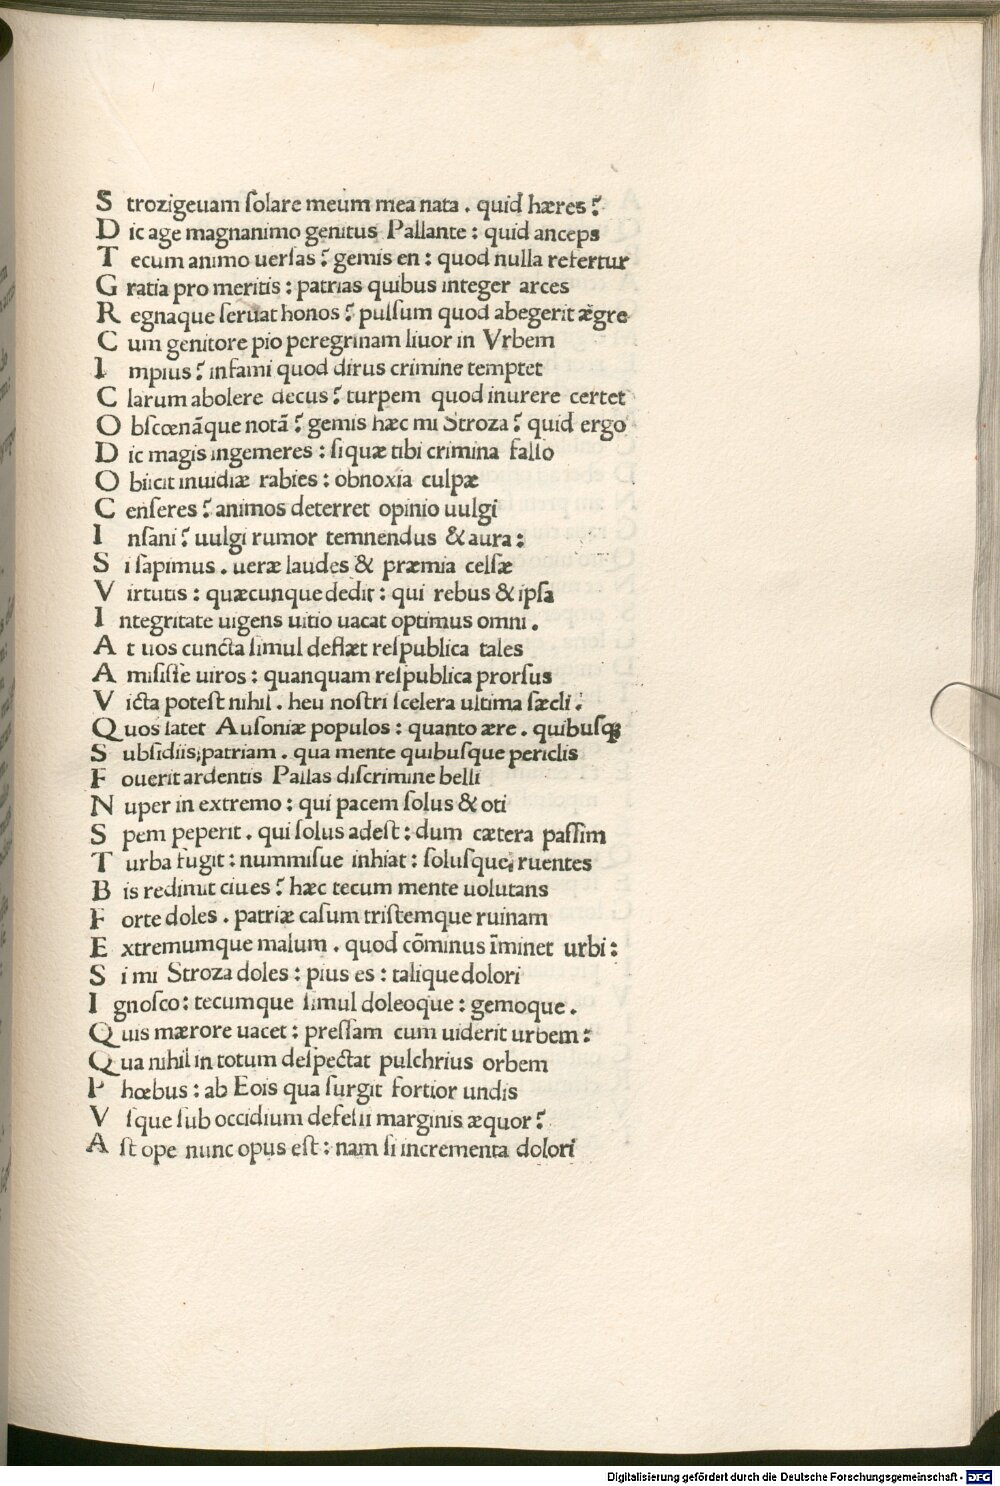 S trozigeuam ſolare meum mea nata . quid hæres ?
D ic age magnanimo genitus Pallante : quid anceps
T ecum animo uerſas ? gemis en : quod nulla refertur
G ratia pro meritis : patrias quibus integer arces
R egnaque ſeruat honos ? pulſum quod abegerit ægre
C um genitore pio peregrinam liuor in Vrbem
I mpius ? infami quod dirus crimine temptet
C larum abolere decus ? turpem quod inurere certet
O bſcœnãque notã ? gemis hæc mi Stroza ? quid ergo
D ic magis ingemeres : ſi quæ tibi crimina fallo
O biicit inuidiæ rabies : obnoxia culpæ
C enſeres ? animos deterret opinio uulgi
I nſani ? uulgi rumor temnendus & aura :
S i ſapimus . ueræ laudes & præmia celſæ
V irtutis : quæcunque dedit : qui rebus & ipſa
I ntegritate uigens uitio uacat optimus omni .
A t uos cuncta ſimul deflæt reſpublica tales
A miſiſſe uiros : quanquam reſpublica prorſus
V icta poteſt nihil . heu noſtri ſcelera ultima ſæcli .
Q uos latet Auſoniæ populos : quanto ære . quibuſq;
S ubſidiis; patriam . qua mente quibuſque periclis
F ouerit ardentis Pallas diſcrimine belli
N uper in extremo : qui pacem ſolus & oti
S pem peperit . qui ſolus adeſt : dum cætera paſſim
T urba fugit : nummiſue inhiat : ſoluſque; ruentes
B is redimit ciues ? hæc tecum mente uolutans
F orte doles . patriæ caſum triſtemque ruinam
E xtremumque malum . quod cõminus ĩminet urbi :
S i mi Stroza doles : pius es : talique dolori
I gnoſco : tecumque ſimul doleoque : gemoque .
Q uis mærore uacet : preſſam cum uiderit urbem :
Q ua nihil in totum deſpectat pulchrius orbem
P hœbus : ab Eois qua ſurgit fortior undis
V ſque ſub occidium defeſſi marginis æquor ?
A ſt ope nunc opus eſt : nam ſi incrementa dolori
Digitalisierung gefördert durch die Deutsche Forschungsgemeinschaft - DFG